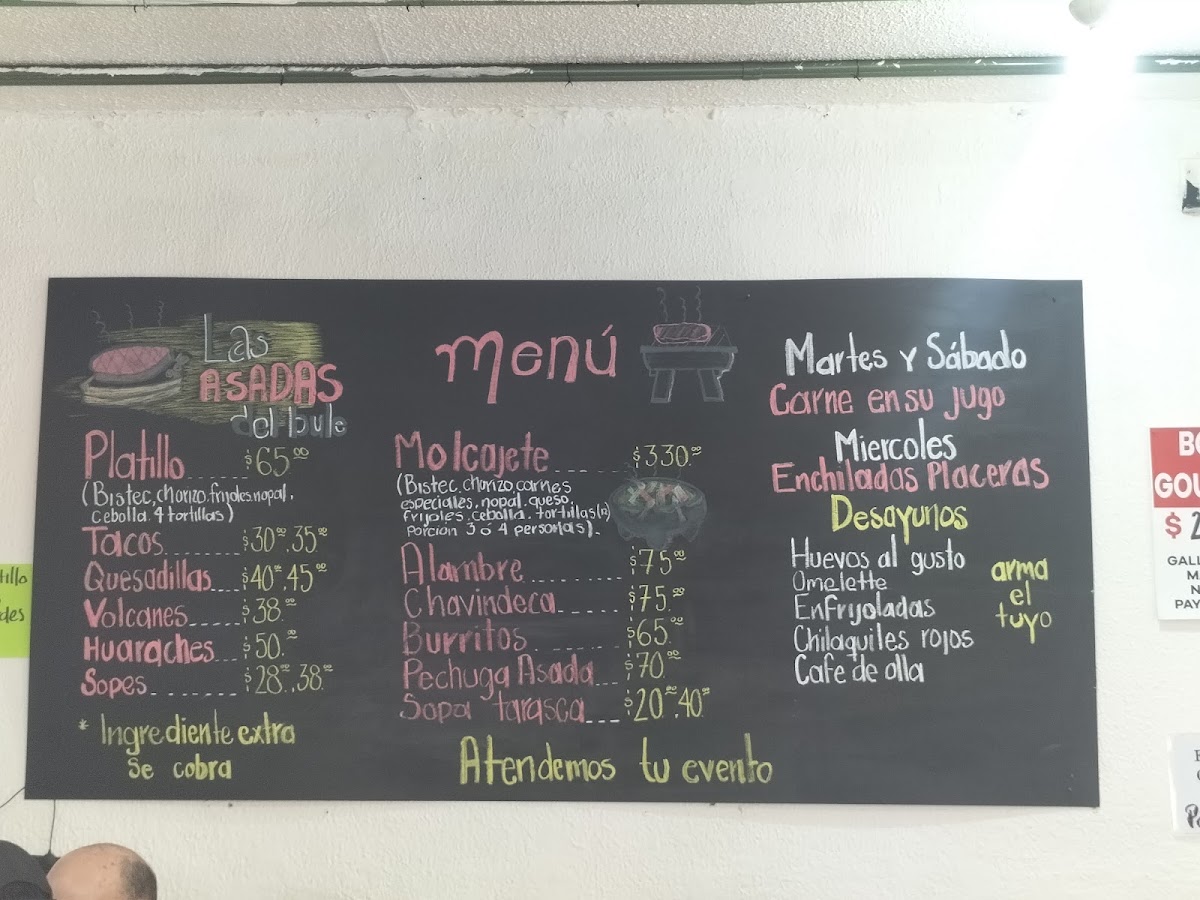 Las
ASADAS
del bule
Platillo $65.00
(Bistec, chorizo, frijoles, nopal,
cebolla. 4 tortillas)
Tacos $30.00, 35.00
Quesadillas $40.00, 45.00
Volcanes $38.00
Huaraches $50.00
Sopes $28.00, 38.00
* Ingrediente extra
se cobra
Menú
Molcajete $330.00
(Bistec, chorizo, carnes
especiales, nopal, queso,
frijoles, cebolla, tortillas(12)
Porción 3 ó 4 personas).
Alambre $75.00
Chavindeca $75.00
Burritos $65.00
Pechuga Asada $70.00
Sopa tarasca $20.00, 40.00
Atendemos tu evento
Martes y Sábado
Carne en su jugo
Miercoles
Enchiladas Placeras
Desayunos
Huevos al gusto
Omelette
Enfrijoladas
Chilaquiles rojos
Cafe de olla
arma
el
tuyo